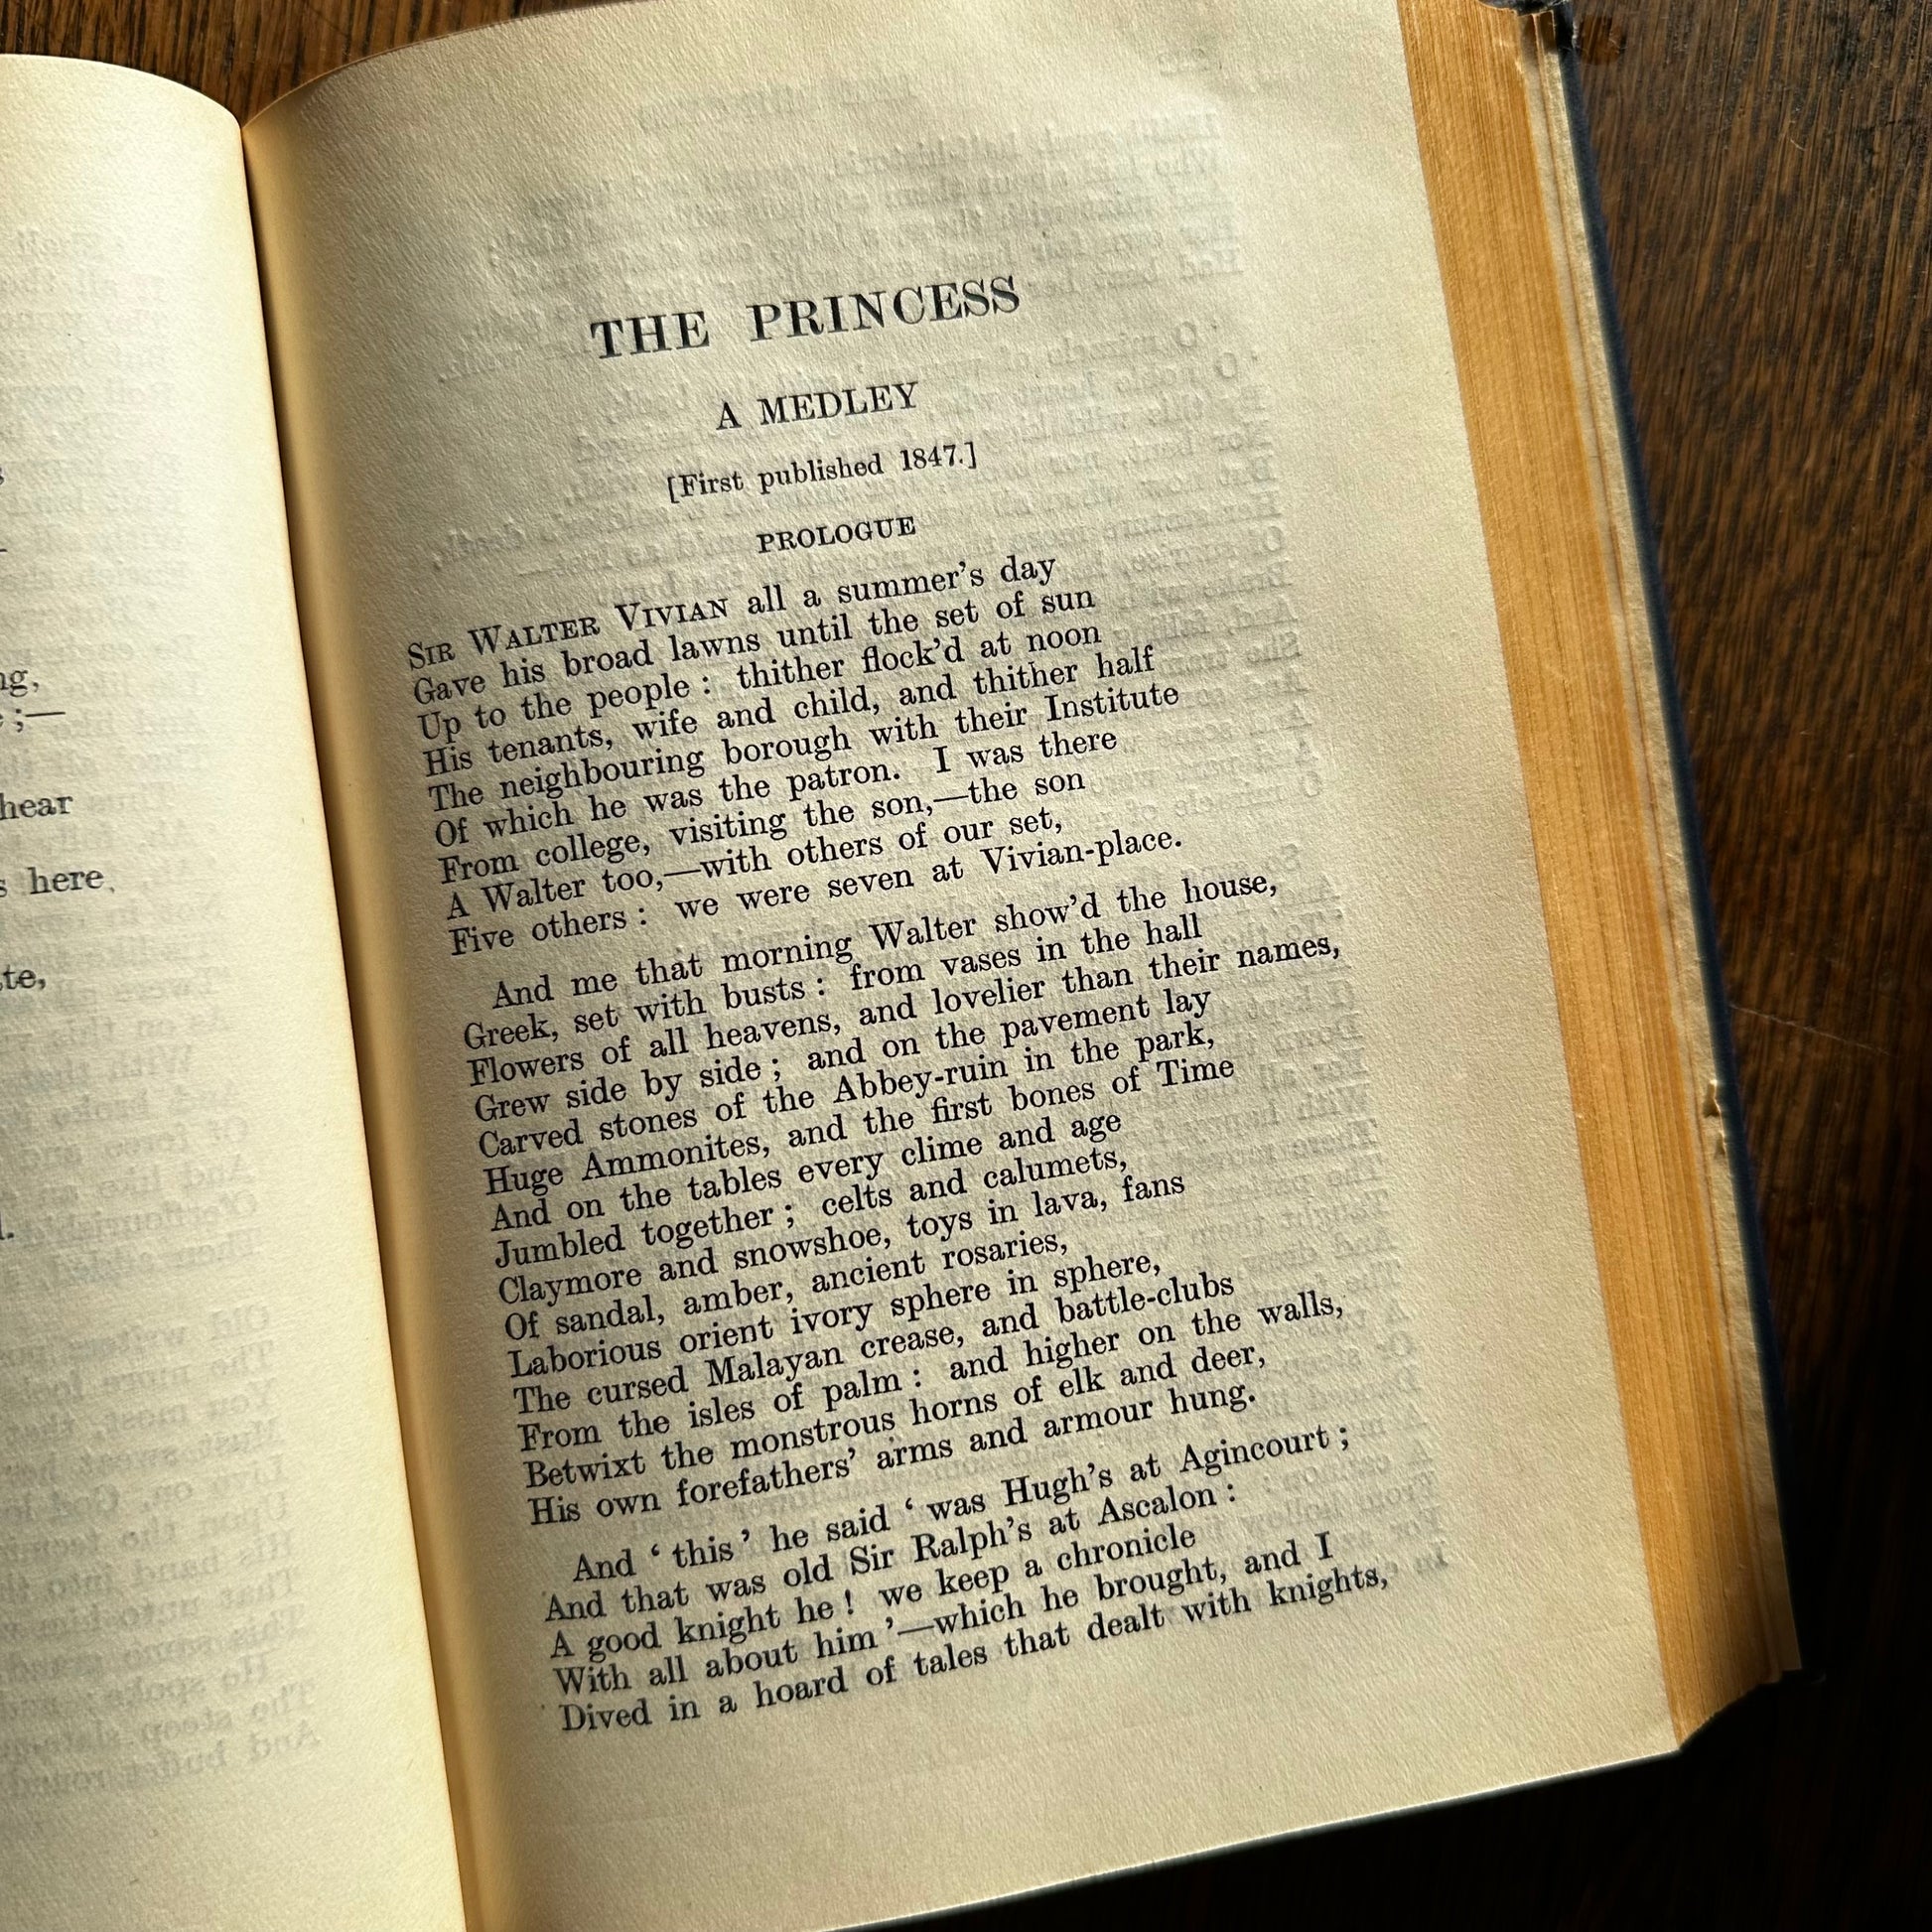 ng,
;—
hear
s here,
te,
THE PRINCESS
A MEDLEY
[First published 1847.]
PROLOGUE
SIR WALTER VIVIAN all a summer's day
Gave his broad lawns until the set of sun
Up to the people : thither flock'd at noon
His tenants, wife and child, and thither half
The neighbouring borough with their Institute
Of which he was the patron. I was there
From college, visiting the son,—the son
A Walter too,—with others of our set,
Five others : we were seven at Vivian-place.
And me that morning Walter show'd the house,
Greek, set with busts : from vases in the hall
Flowers of all heavens, and lovelier than their names,
Grew side by side ; and on the pavement lay
Carved stones of the Abbey-ruin in the park,
Huge Ammonites, and the first bones of Time
And on the tables every clime and age
Jumbled together ; celts and calumets,
Claymore and snowshoe, toys in lava, fans
Of sandal, amber, ancient rosaries,
Laborious orient ivory sphere in sphere,
The cursed Malayan crease, and battle-clubs
From the isles of palm : and higher on the walls,
Betwixt the monstrous horns of elk and deer,
His own forefathers' arms and armour hung.
And ‘ this ’ he said ‘ was Hugh's at Agincourt ;
And that was old Sir Ralph's at Ascalon :
A good knight he ! we keep a chronicle
With all about him ’—which he brought, and I
Dived in a hoard of tales that dealt with knights,